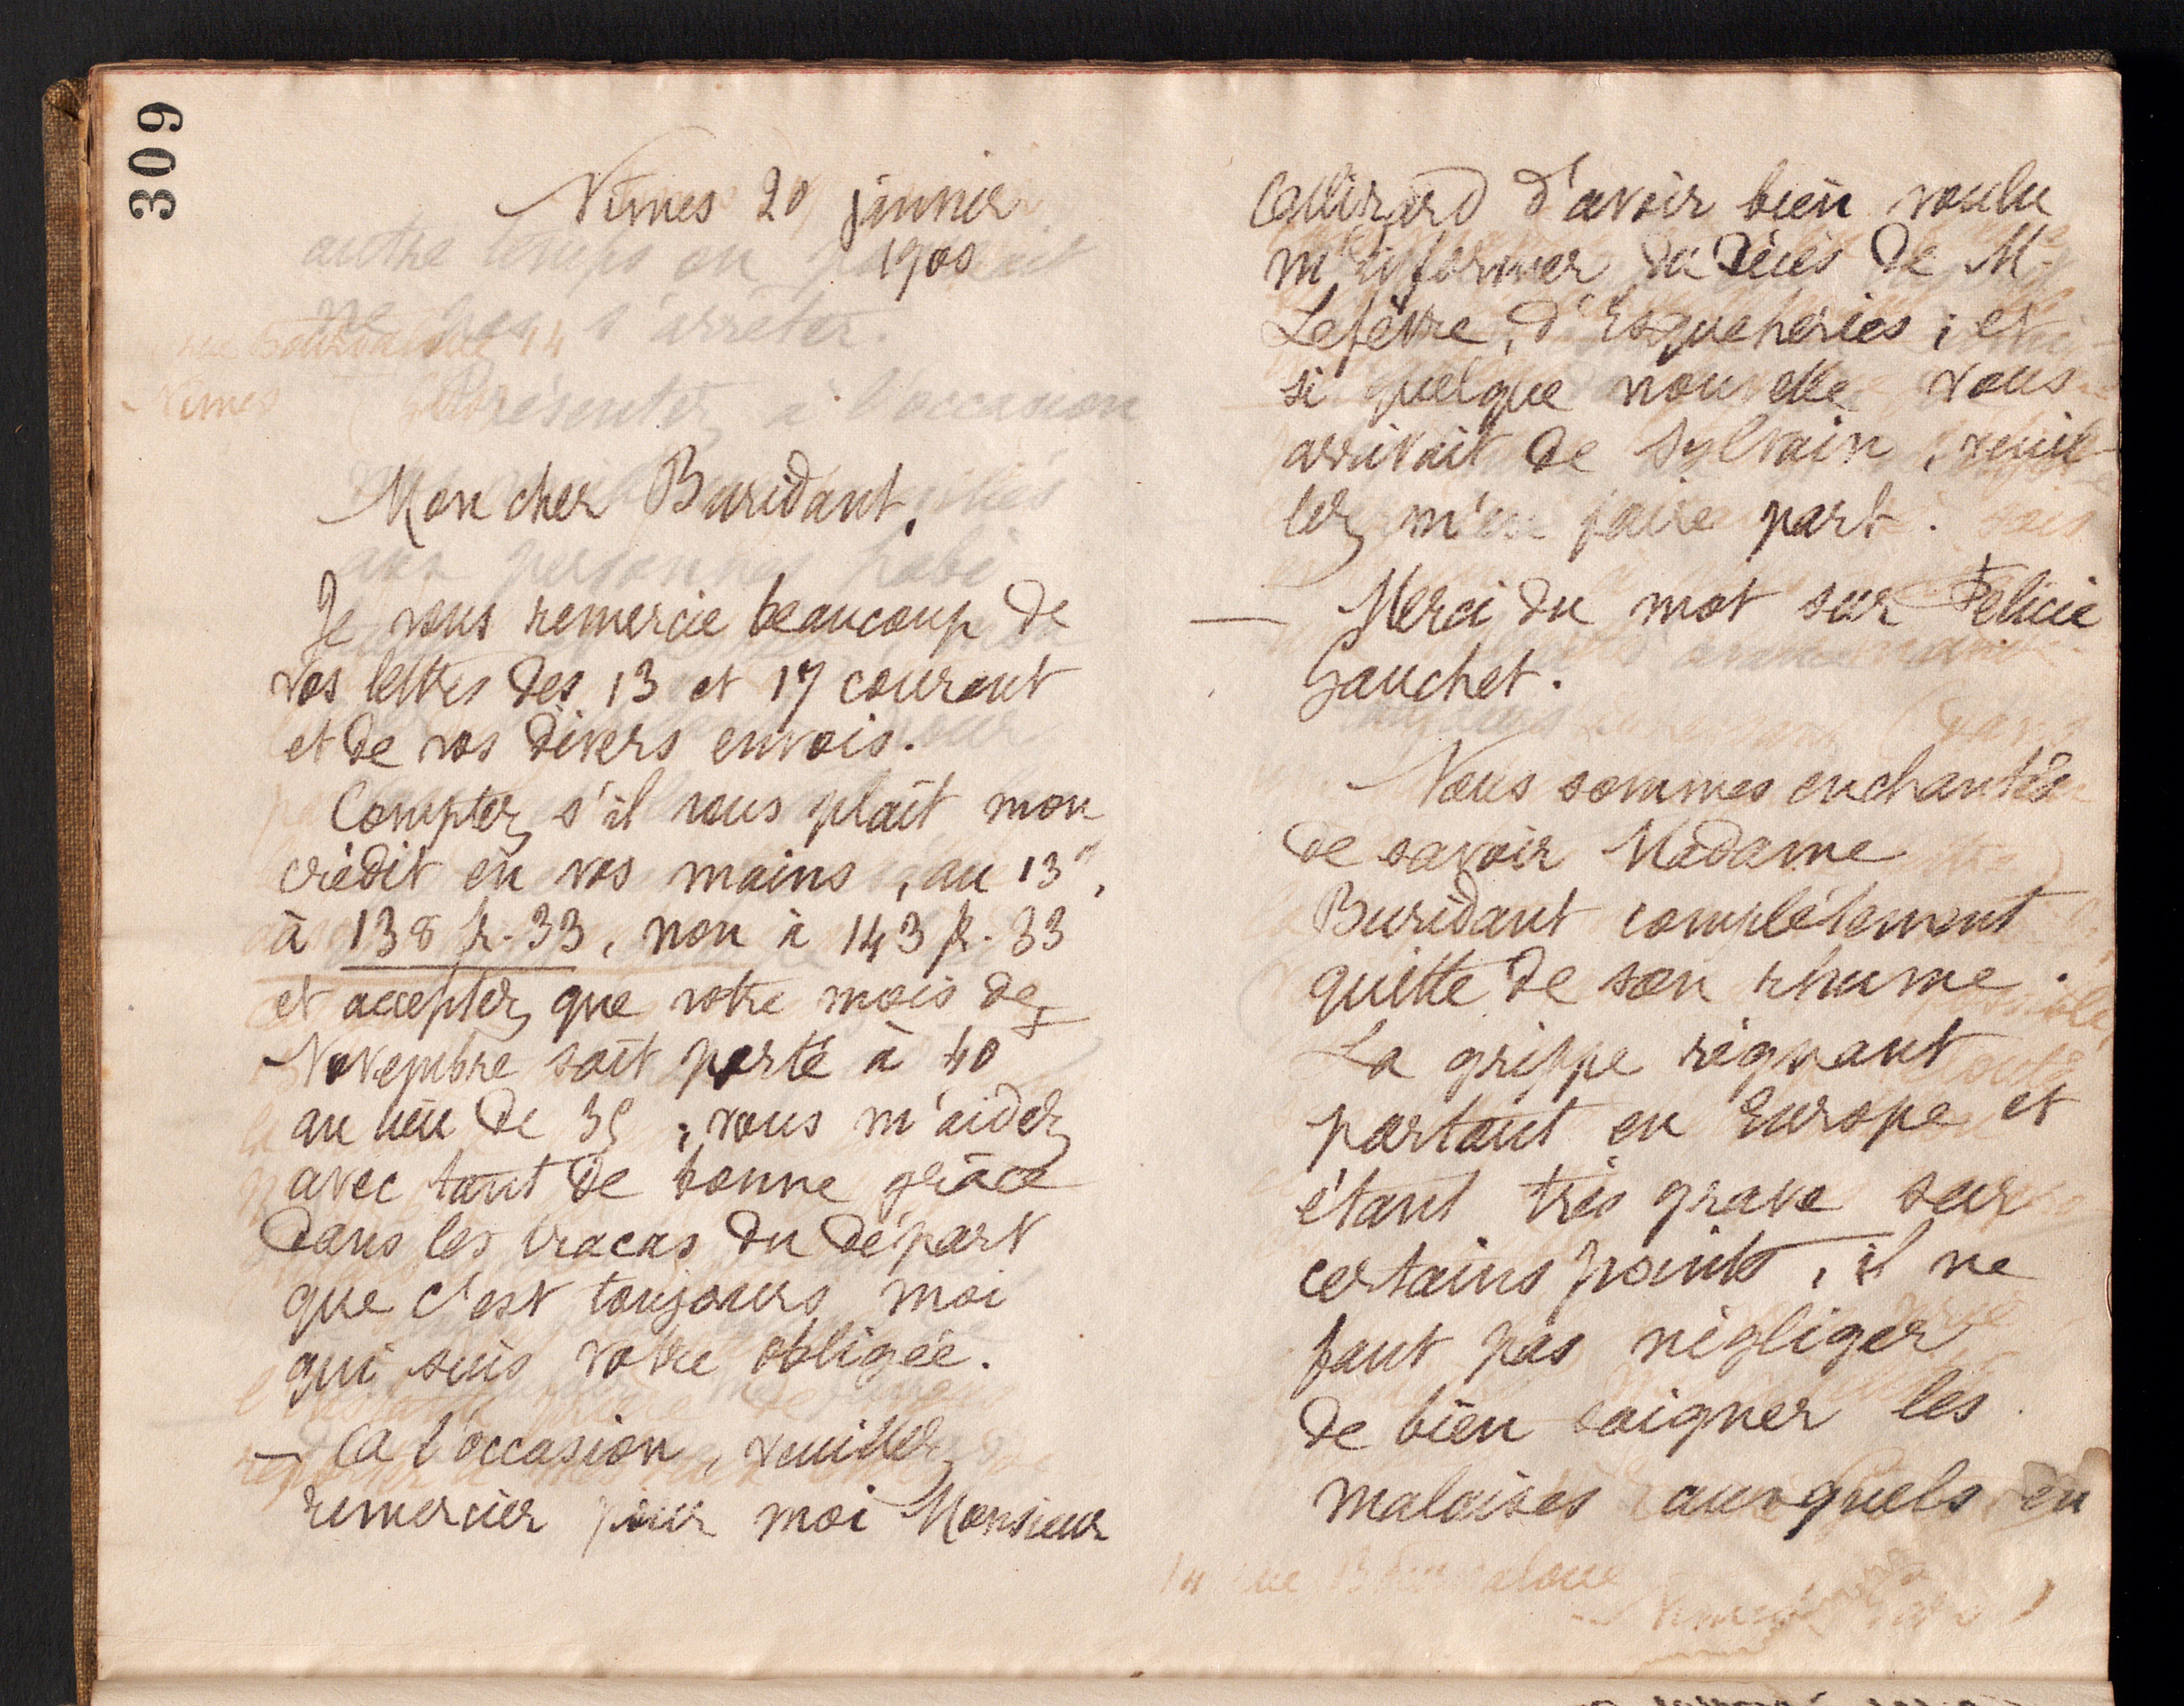 309
Nîmes 20 janvier
1900
Mon cher Buridant,
Je vous remercie beaucoup de
vos lettres des 13 et 17 courant
et de vos divers envois.
Comptez s'il vous plaît mon
crédit en vos mains, au 13,
à 138 fr. 33, non à 143 fr. 33
et acceptez que votre mois de
Novembre soit porté à 40 f
au lieu de 35 ; vous m'aidez
avec tant de bonne grâce
dans les tracas du départ
que c'est toujours moi
qui suis votre obligée.
— A l'occasion, veuillez
remercier pour moi Monsieur
d'avoir bien voulu
m'informer du décès de Mr
Lefèvre, d'Esquehéries ; et
si quelque nouvelle vous
arrivait de Sylvain, veuil-
lez m'en faire part.
— Merci du mot sur Félicie
Gauchet.
Nous sommes enchantés
de savoir Madame
Buridant complètement
quitte de son rhume.
La grippe régnant
partout en Europe et
étant très grave sur
certains points, il ne
faut pas négliger
de bien soigner les
malaises auxquels on